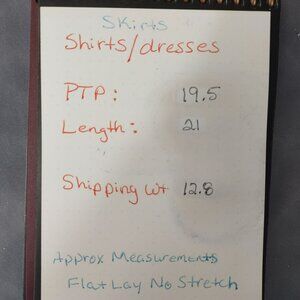 Skirts
Shirts/dresses
PTP: 19.5
Length: 21
Shipping wt 12.8
Approx Measurements
Flat Lay No Stretch